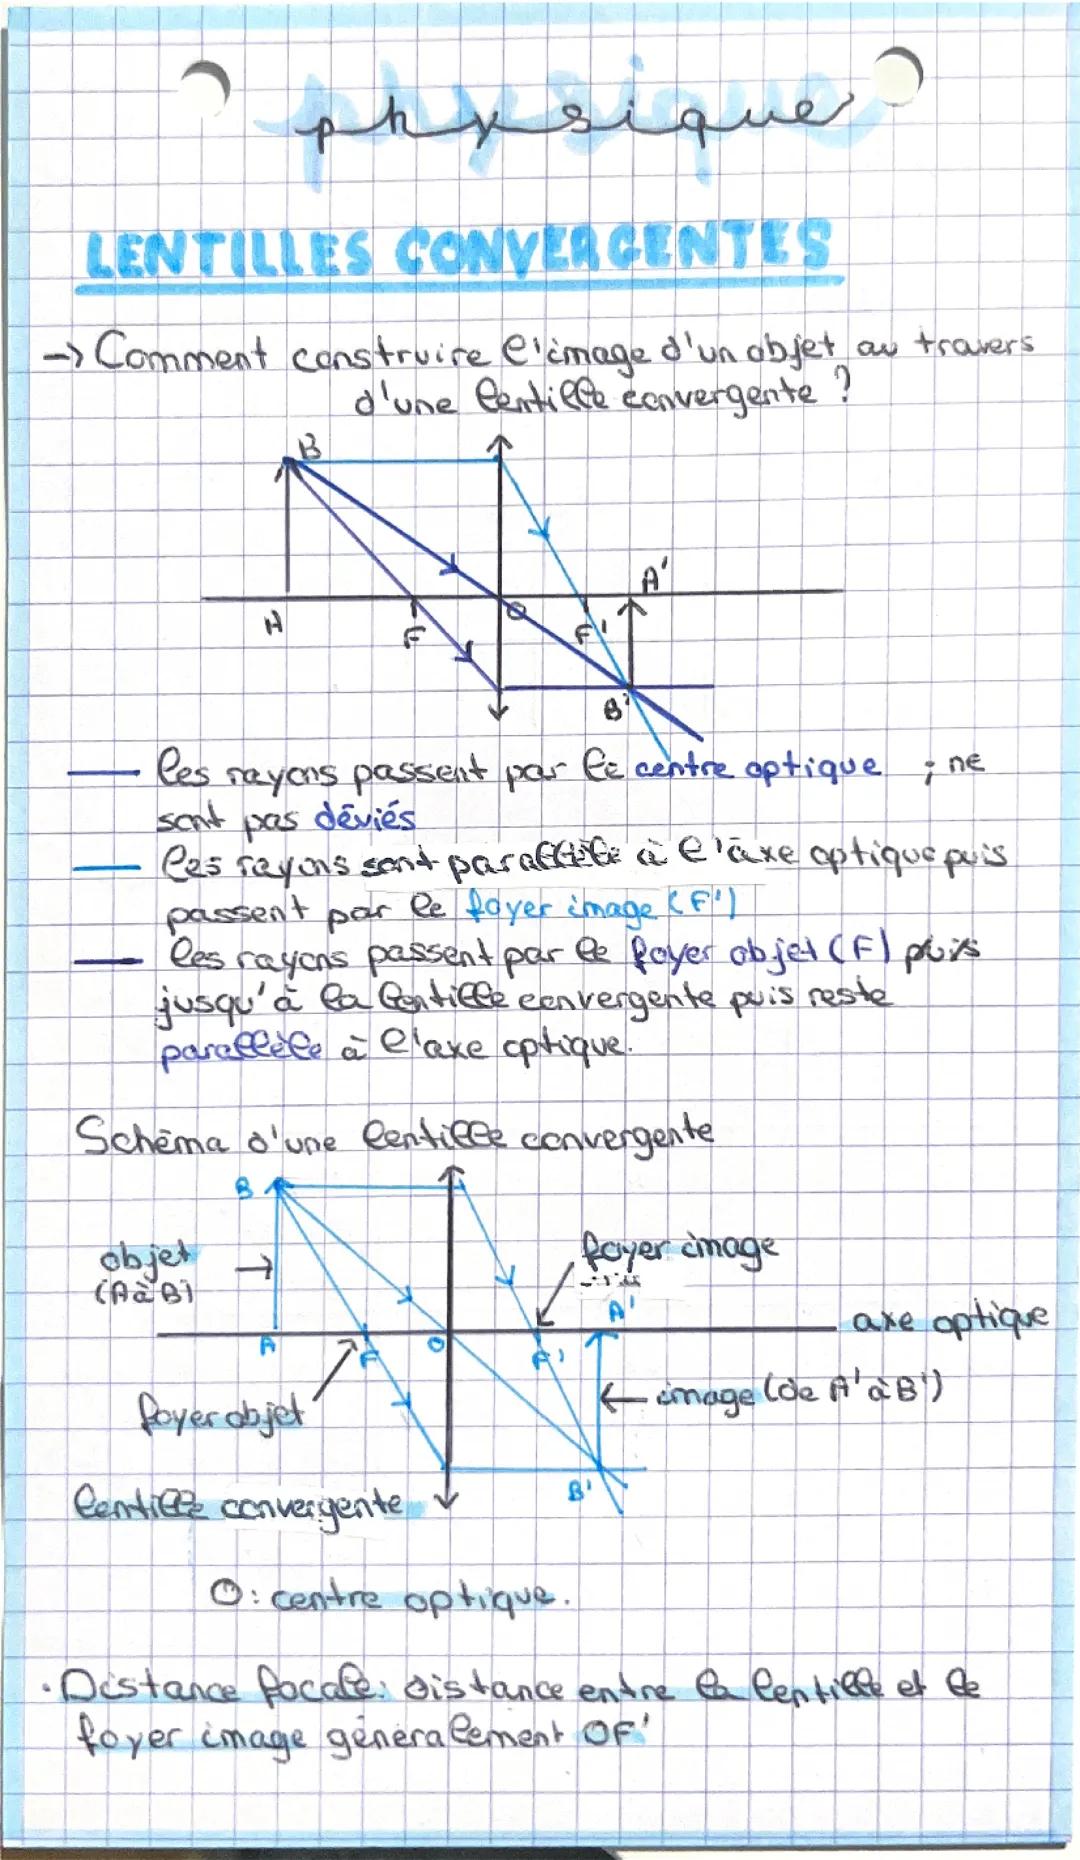 physique
LENTILLES CONVERGENTES
→ Comment construire l'image d'un objet au travers
d'une lentille convergente ?
B
A'
A
F
O
F'
B'
les rayons passent par le centre optique ; ne
sont pas déviés
les rayons sont parallèle à l'axe optique puis
passent par le foyer image (F')
les rayons passent par le foyer objet (F) puis
jusqu'à la lentille convergente puis reste
parallèle à l'axe optique.
Schéma d'une lentille convergente
B
objet
(A à B)
foyer image
A'
axe optique
A
F
O
F'
image (de A' à B')
foyer objet
B'
lentille convergente
O: centre optique.
· Distance focale: distance entre la lentille et le
foyer image généralement OF'